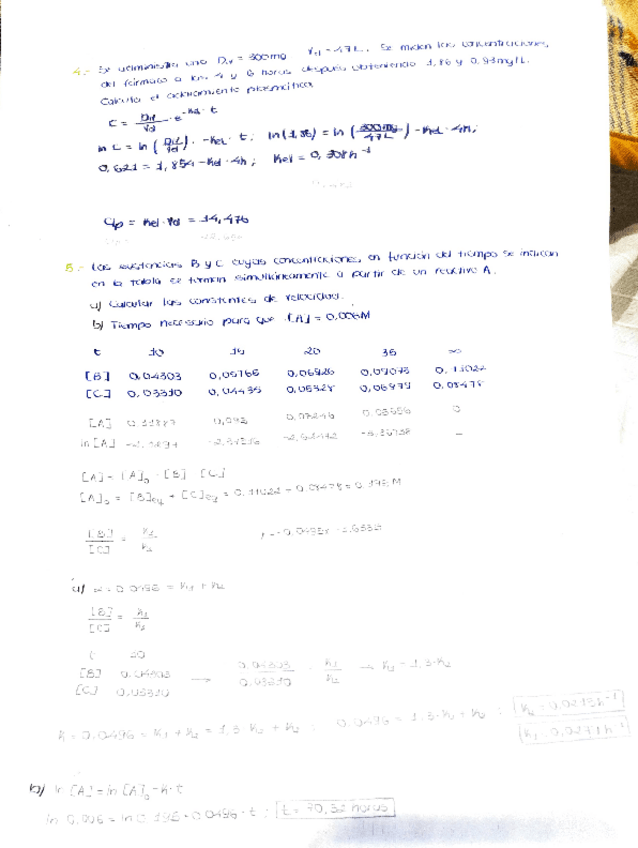 4.- Se administra una Div = 300mg Vd = 47L. Se miden las concentraciones
del fármaco a las 4 y 6 horas después obteniendo 1,86 y 0,93mg/L.
Calcula el aclaramiento plasmático
C = Div/Vd · e^-Kel · t
ln C = ln (Div/Vd) · -Kel · t; ln(1,86) = ln (300mg/47L) - Kel · 4h;
0,621 = 1,854 - Kel · 4h; Kel = 0,308h⁻¹
Clp = Kel · Vd = 14,476
5.- Las sustancias B y C cuyas concentraciones en función del tiempo se indican
en la tabla se forman simultáneamente a partir de un reactivo A.
a) Calcular las constantes de velocidad.
b) Tiempo necesario para que [A] = 0,006M
t 10 20 35 ∞
[B] 0,04303 0,05765 0,06926 0,09075 0,11022
[C] 0,03310 0,04435 0,05328 0,06979 0,08478
[A] 0,092 0
ln [A] –
[A] = [A]₀ - [B] - [C]
[A]₀ = [B]eq + [C]eq = 0,11022 + 0,08478 = 0,195M
[B]/[C] = K₁/K₂
a) = 0,0496 = K₁ + K₂
[B]/[C] = K₁/K₂
t 10
[B] 0,04303 → 0,04303/0,03310 = K₁/K₂ → K₁ = 1,3·K₂
[C] 0,03310
K = 0,0496 = K₁ + K₂ = 1,3·K₂ + K₂ ; 0,0496 = 1,3·K₂ + K₂ ;
b) ln [A] = ln [A]₀ - K·t
ln 0,006 = ln 0,195 - 0,0496 · t ; t = 70,32 horas